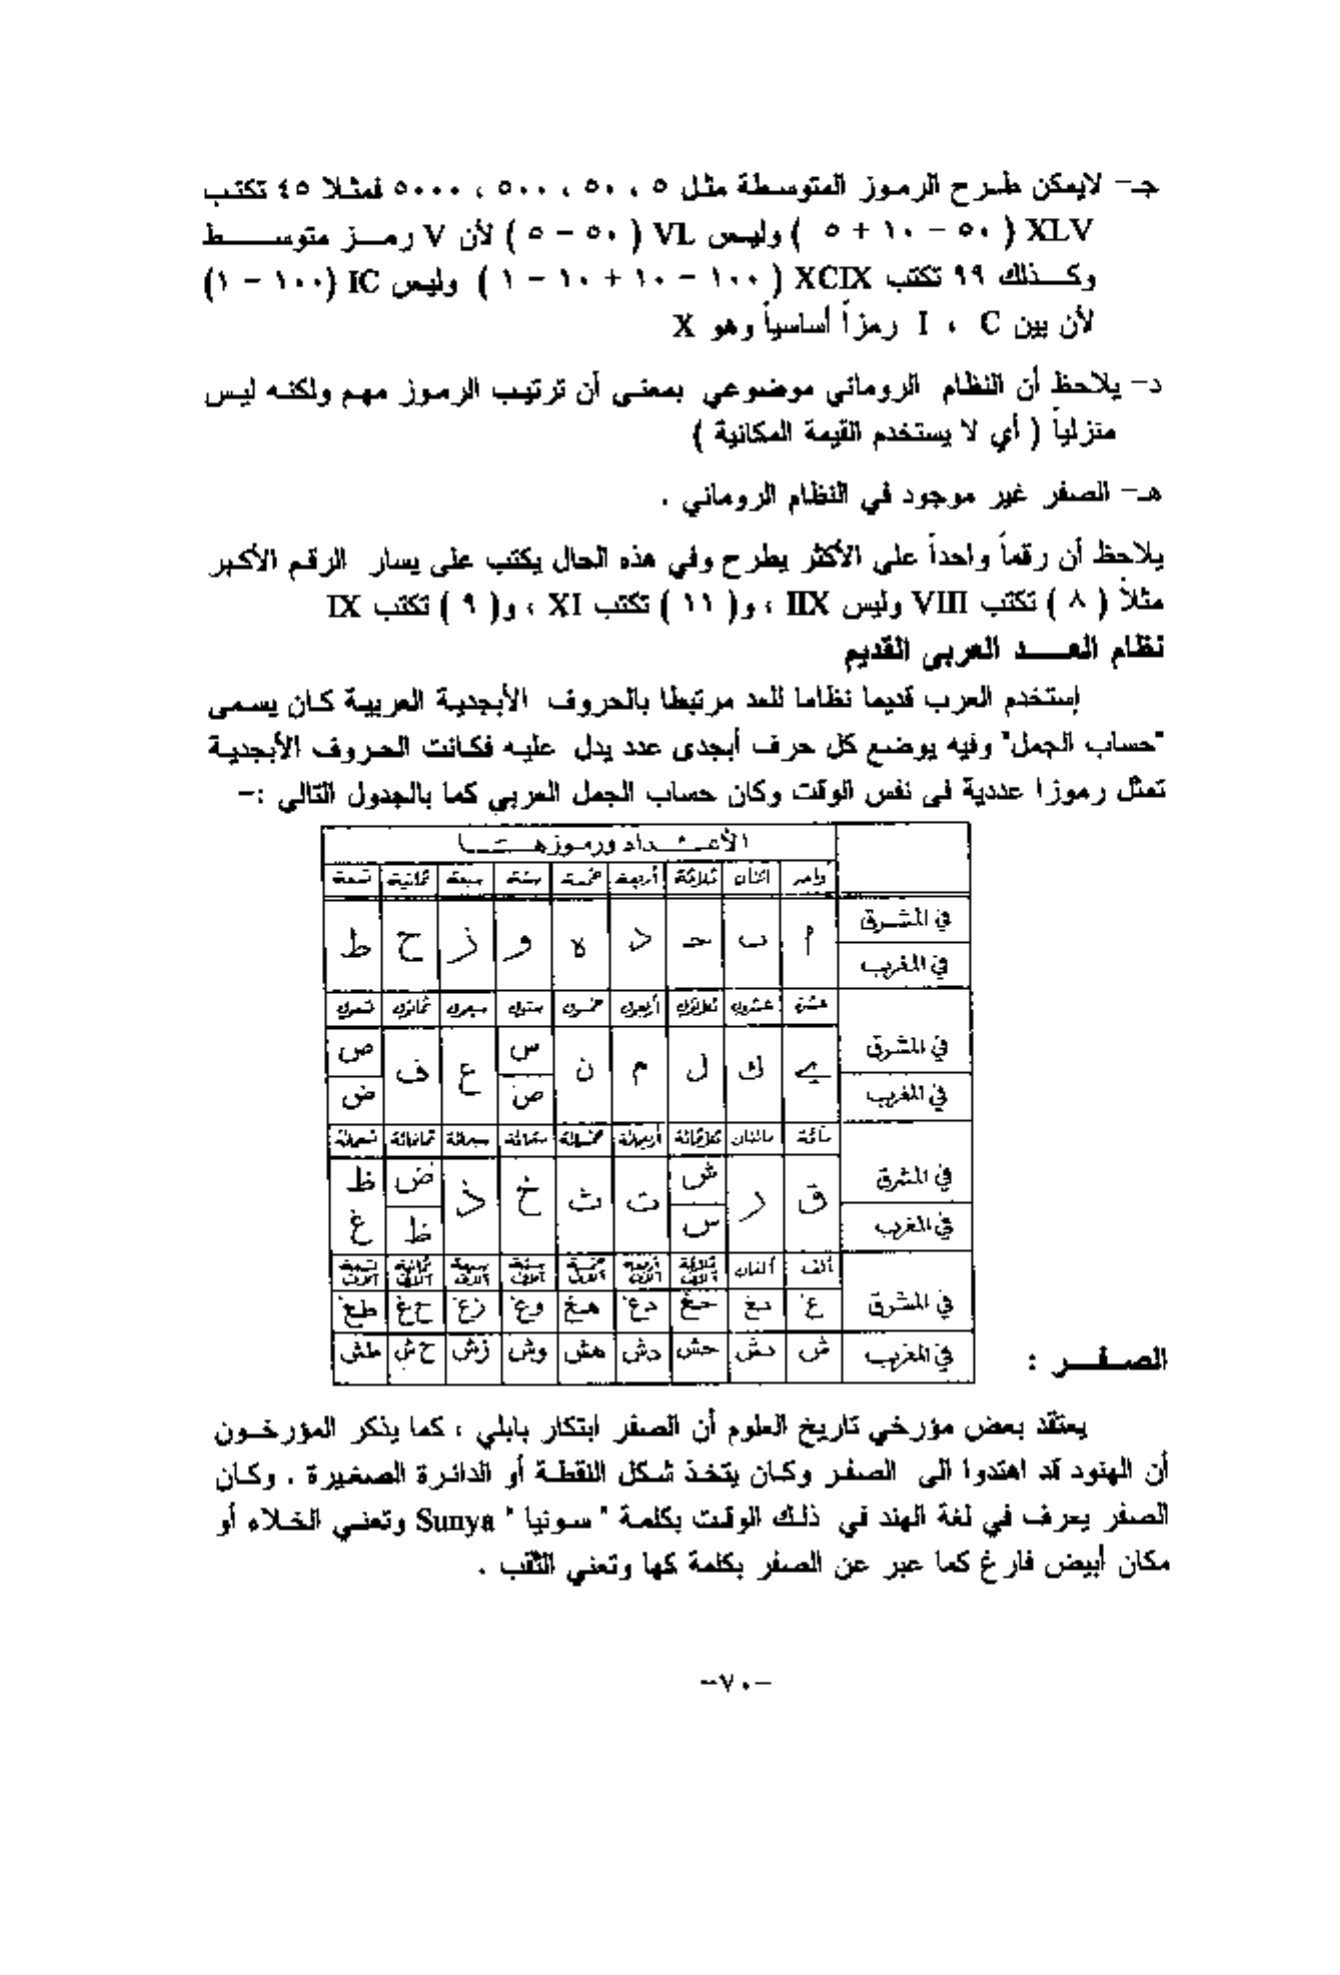 جـ- لايمكن طرح الرموز المتوسطة مثل ٥ ، ٥٠ ، ٥٠٠ ، ٥٠٠٠ فمثلا ٤٥ تكتب
XLV ( ٥٠ - ١٠ + ٥ ) وليس VL ( ٥٠ - ٥ ) لأن V رمـــز متوســـط
وكـــذلك ٩٩ تكتب XCIX ( ١٠٠ - ١٠ + ١٠ - ١ ) وليس IC (١٠٠ - ١)
لأن بين I ، C رمزاً أساسياً وهو X
د- يلاحظ أن النظام الروماني موضوعي بمعنى أن ترتيب الرموز مهم ولكنه ليس
منزلياً ( أي لا يستخدم القيمة المكانية )
هـ- الصفر غير موجود في النظام الروماني .
يلاحظ أن رقماً واحداً على الأكثر يطرح وفي هذه الحال يكتب على يسار الرقم الأكبر
مثلاً ( ٨ ) تكتب VIII وليس IIX ، و( ١١ ) تكتب XI ، و( ٩ ) تكتب IX
نظام العـــد العربى القديم
إستخدم العرب قديما نظاما للعد مرتبطا بالحروف الأبجدية العربية كان يسمى
"حساب الجمل" وفيه يوضع كل حرف أبجدى عدد يدل عليه فكانت الحروف الأبجدية
تمثل رموزا عددية فى نفس الوقت وكان حساب الجمل العربي كما بالجدول التالي :-
الأعـــداد ورموزهـــا
واحد اثنان ثلاثة أربعة خمسة ستة سبعة ثمانية تسعة
في المشرق
ا ب حـ د ه و ز ح ط
في المغرب
عشرة عشرون ثلاثون أربعون خمسون ستون سبعون ثمانون تسعون
في المشرق
ي ك ل م ن س ع ف ص
في المغرب ض ض
مائة مائتان ثلاثمائة أربعمائة خمسمائة ستمائة سبعمائة ثمانمائة تسعمائة
في المشرق
ق ر ش ت ث خ ذ ض ظ
في المغرب س ظ غ
ألف ألفان ثلاثة آلاف أربعة آلاف خمسة آلاف ستة آلاف سبعة آلاف ثمانية آلاف تسعة آلاف
في المشرق غ بغ حغ دغ هغ وغ زغ حغ طغ
في المغرب ش بش حش دش هش وش زش حش طش
الصـــفـــر :
يعتقد بعض مؤرخي تاريخ العلوم أن الصفر ابتكار بابلي ، كما يذكر المؤرخون
أن الهنود قد اهتدوا الى الصفر وكان يتخذ شكل النقطة أو الدائرة الصغيرة . وكان
الصفر يعرف في لغة الهند في ذلك الوقت بكلمة " سونيا " Sunya وتعني الخلاء أو
مكان أبيض فارغ كما عبر عن الصفر بكلمة كها وتعني الثقب .
-٧٠-